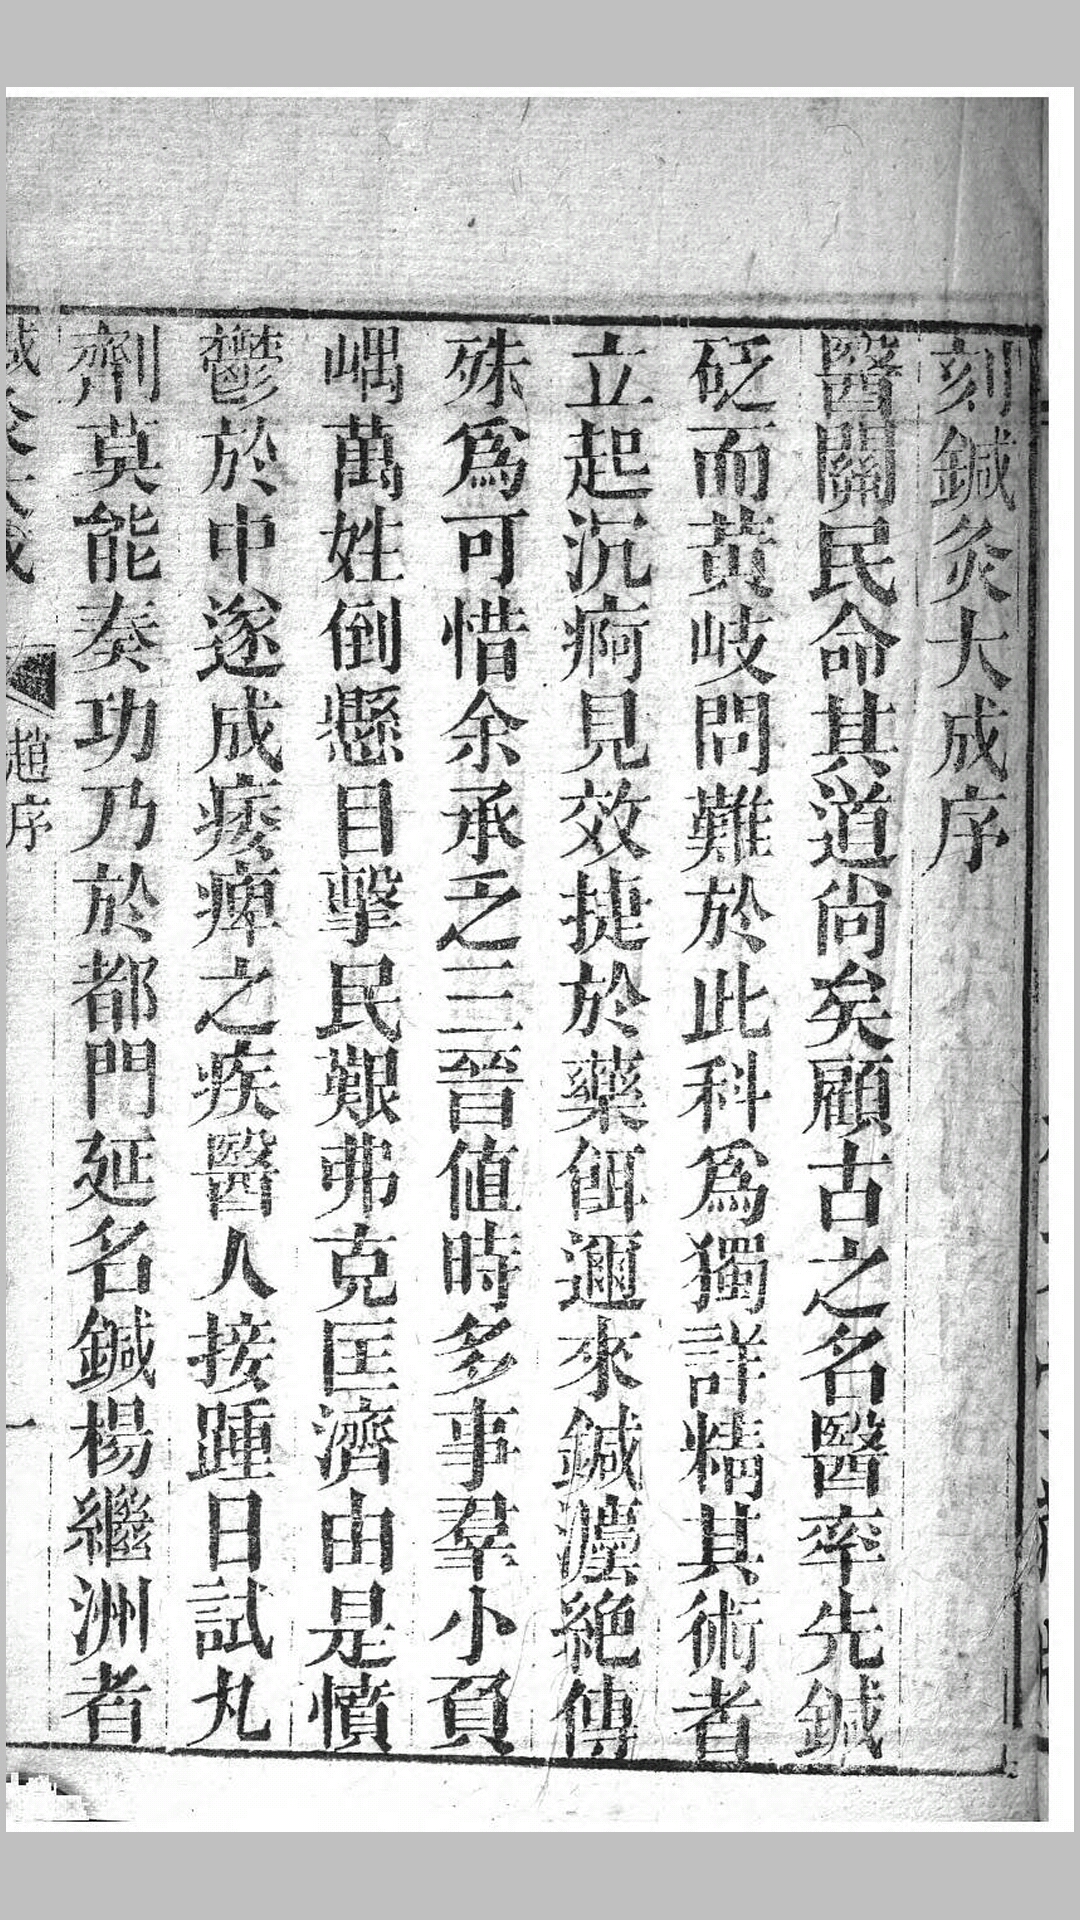 刻鍼灸大成序
醫關民命其道尚矣顧古之名醫率先鍼
砭而黃岐問難於此科爲獨詳精其術者
立起沉痾見效捷於藥餌邇來鍼灋絕傳
殊爲可惜余承乏三晉値時多事羣小負
嵎萬姓倒懸目擊民艱弗克匡濟由是憤
鬱於中遂成痿痺之疾醫人接踵日試丸
劑莫能奏功乃於都門延名鍼楊繼洲者
趙序
一